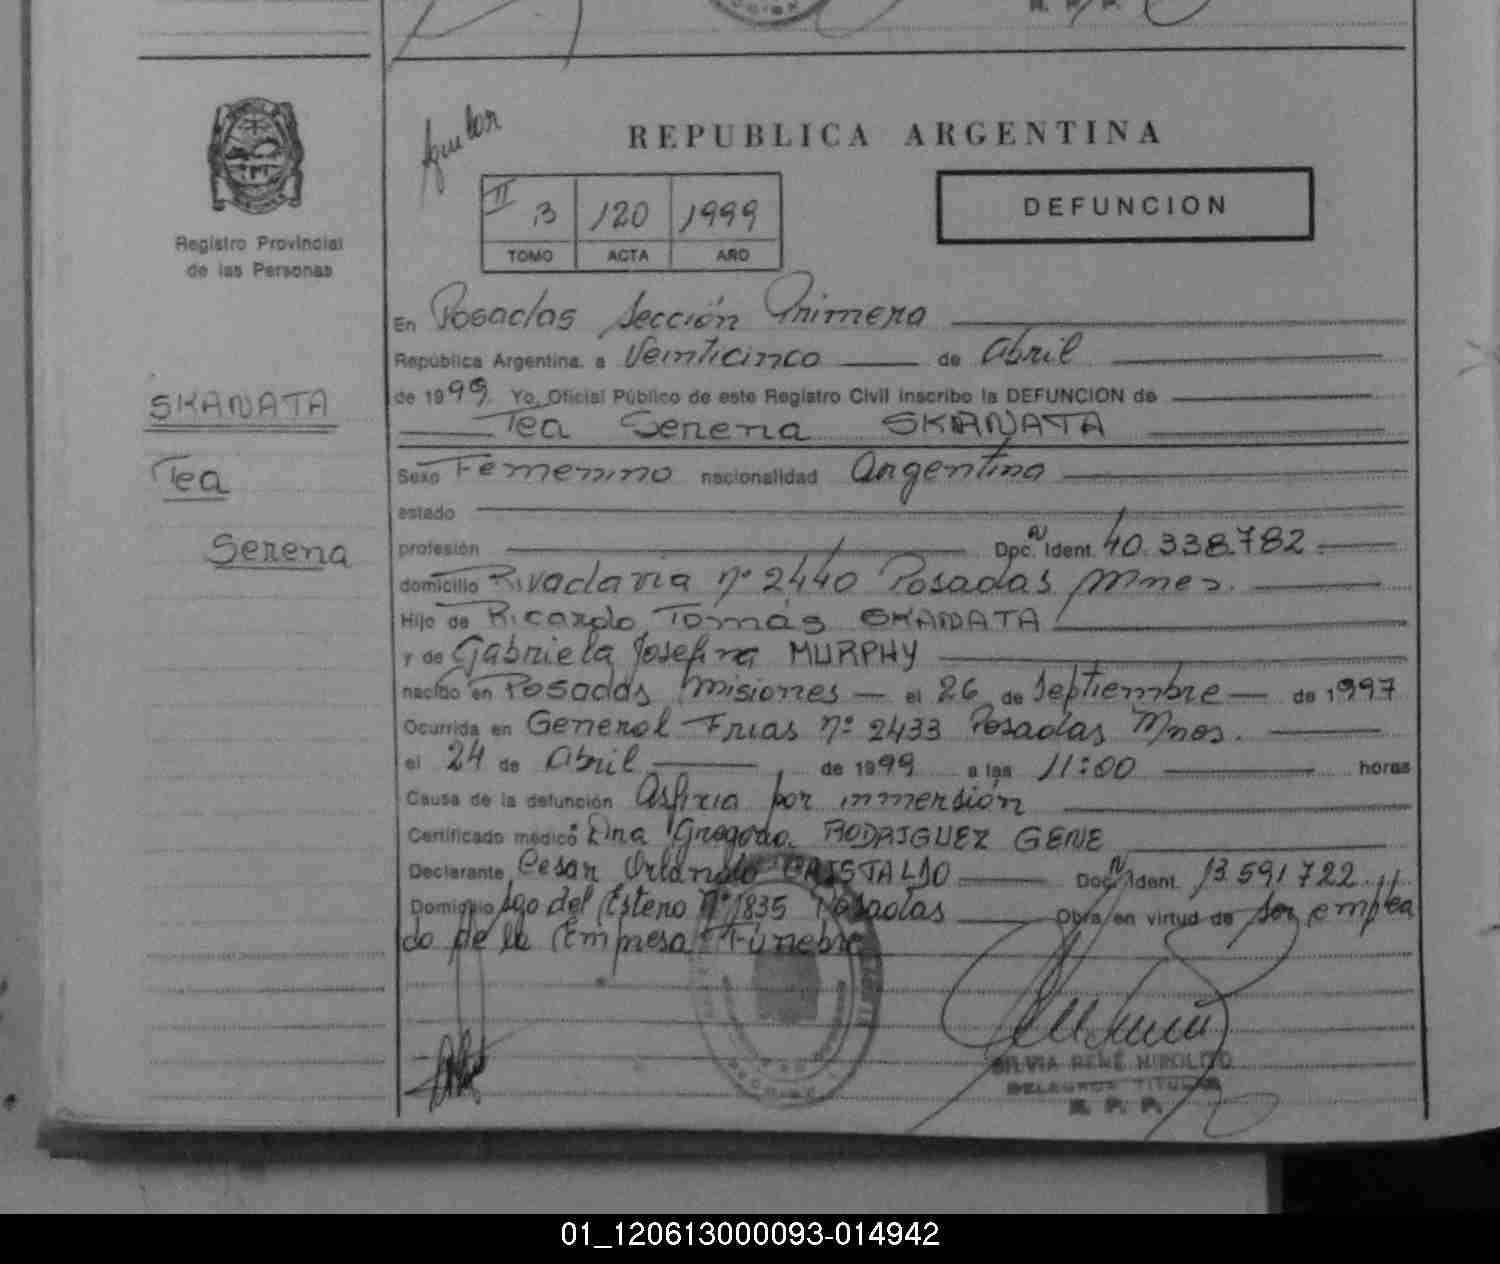 REPUBLICA ARGENTINA
DEFUNCION
II 3 120 1999
TOMO ACTA AÑO
Registro Provincial
de las Personas
SKANATA
Tea
Serena
En Posadas Sección Primera
República Argentina, a Veinticinco de Abril
de 1999 Yo, Oficial Público de este Registro Civil inscribo la DEFUNCION de
Tea Serena SKANATA
Sexo Femenino nacionalidad Argentina
estado
profesión Doc. Ident. 40.338.782
domicilio Rivadavia nº 2440 Posadas Mnes.
Hijo de Ricardo Tomás SKANATA
y de Gabriela Josefina MURPHY
nacido en Posadas Misiones el 26 de Septiembre de 1997
Ocurrida en General Frias nº 2433 Posadas Mnes.
el 24 de Abril de 1999 a las 11:00 horas
Causa de la defunción Asfixia por inmersión
Certificado médico Dra RODRIGUEZ GENE
Declarante Cesar Orlando CRISTALDO Doc. Ident. 13.591.722
Domicilio Sgo del Estero Nº 1835 Posadas Obra en virtud de ser emplea
do de la Empresa Fúnebre
SILVIA RENÉ HIPOLITO
DELEGADA TITULAR
R. P. P.
01_120613000093-014942